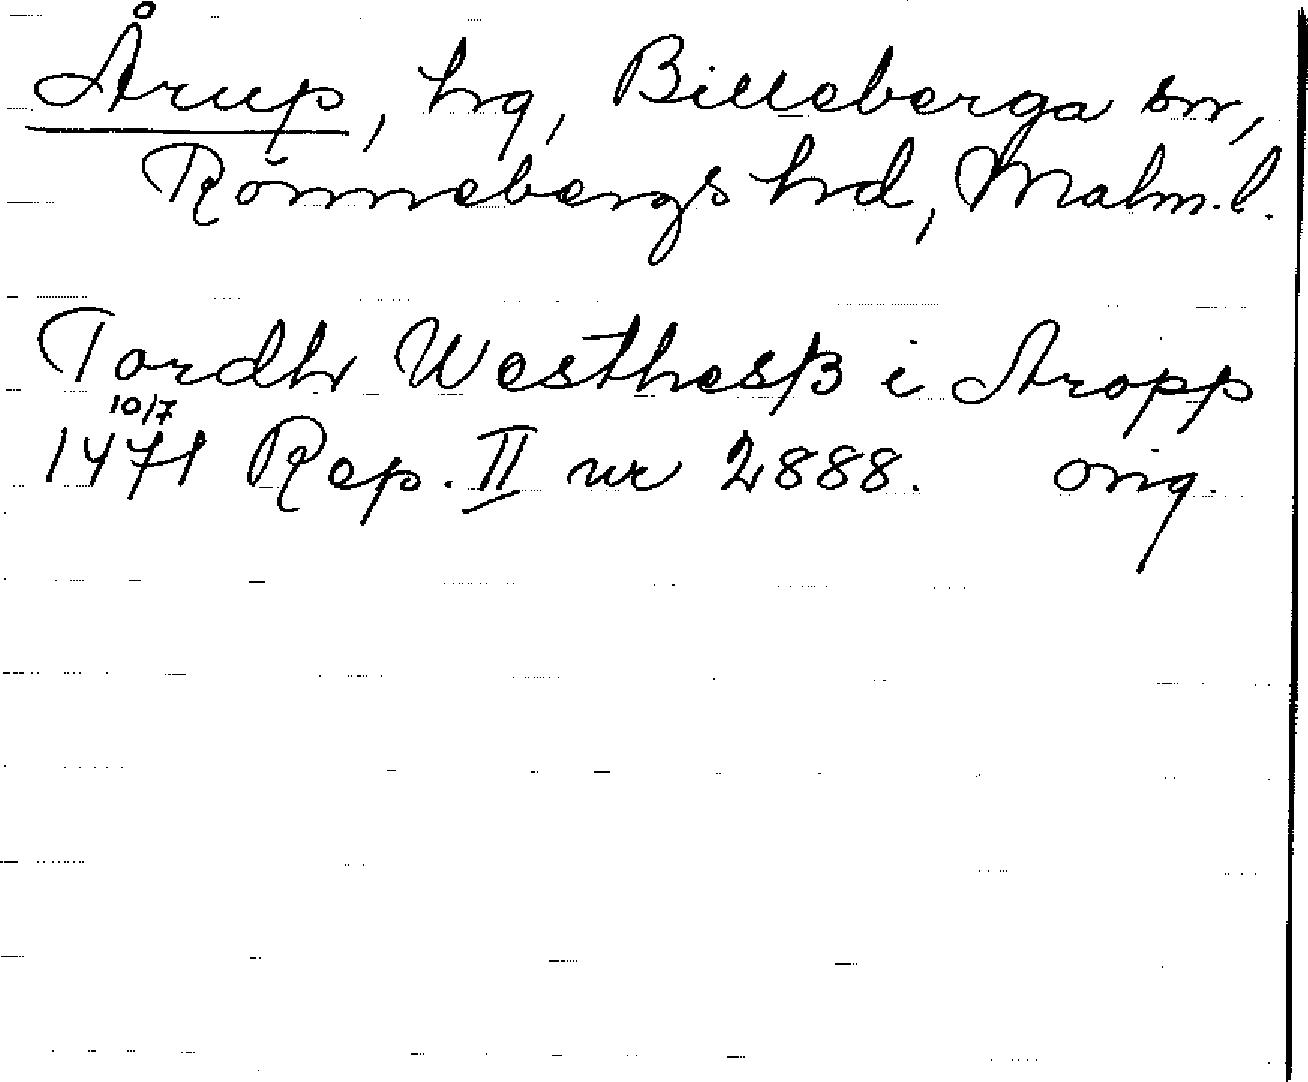 Årup, hg, Billeberga sn,
Rönnebergs hrd, Malm.l.
Tordh Westhesß i Aropp
10/7
1471 Rep. II nr 2888. orig.